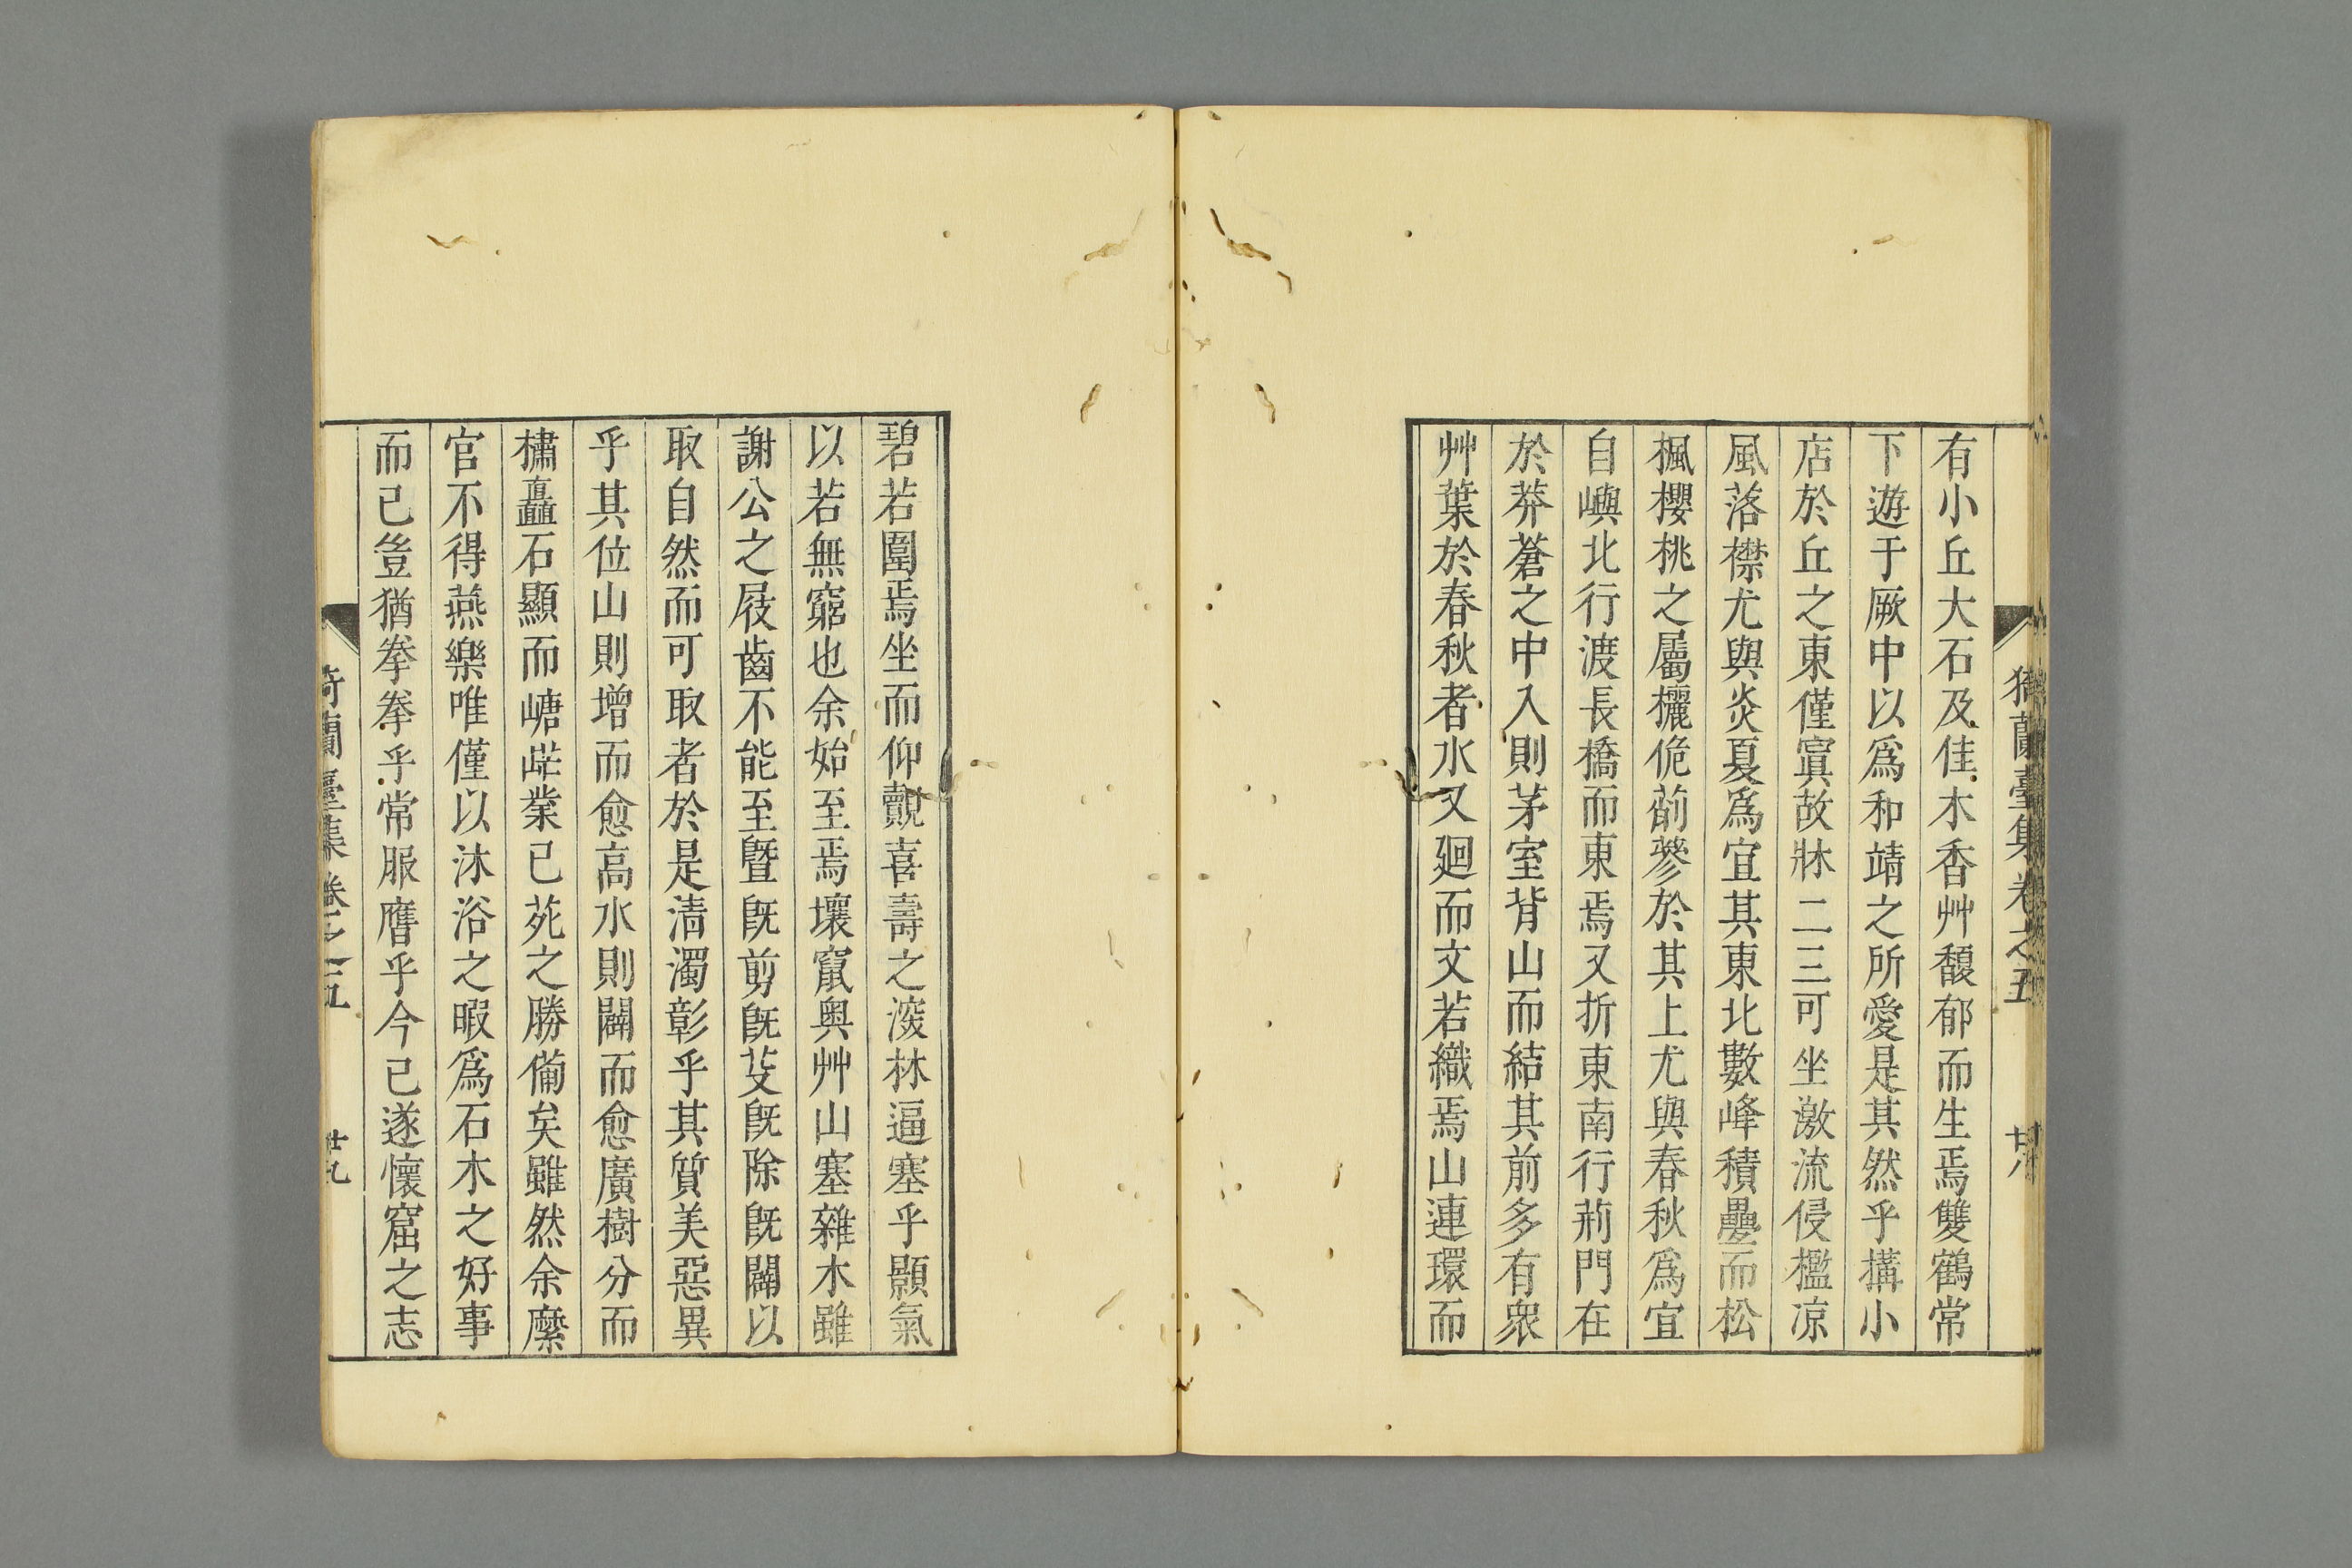 猗蘭臺集卷之五 廿八
有小丘大石及佳木香艸馥郁而生焉雙鶴常
下遊于厥中以爲和靖之所愛是其然乎搆小
店於丘之東僅寘故牀二三可坐激流侵檻凉
風落襟尤與炎夏爲宜其東北數峰積疊而松
楓櫻桃之屬欐佹萷蔘於其上尤與春秋爲宜
自嶼北行渡長橋而東焉又折東南行荊門在
於莽蒼之中入則茅室背山而結其前多有衆
艸葉於春秋者水又廻而文若織焉山連環而
碧若圍焉坐而仰觀喜壽之深林逼塞乎顥氣
以若無窮也余始至焉壤竄奥艸山塞雜木雖
謝公之屐齒不能至曁旣剪旣芟旣除旣闢以
取自然而可取者於是淸濁彰乎其質美惡異
乎其位山則增而愈高水則闢而愈廣樹分而
橚矗石顯而嵣㟐業已苑之勝備矣雖然余縻
官不得燕樂唯僅以沐浴之暇爲石木之好事
而已豈猶拳拳乎常服膺乎今已遂懷窟之志
猗蘭臺集卷之五 廿九